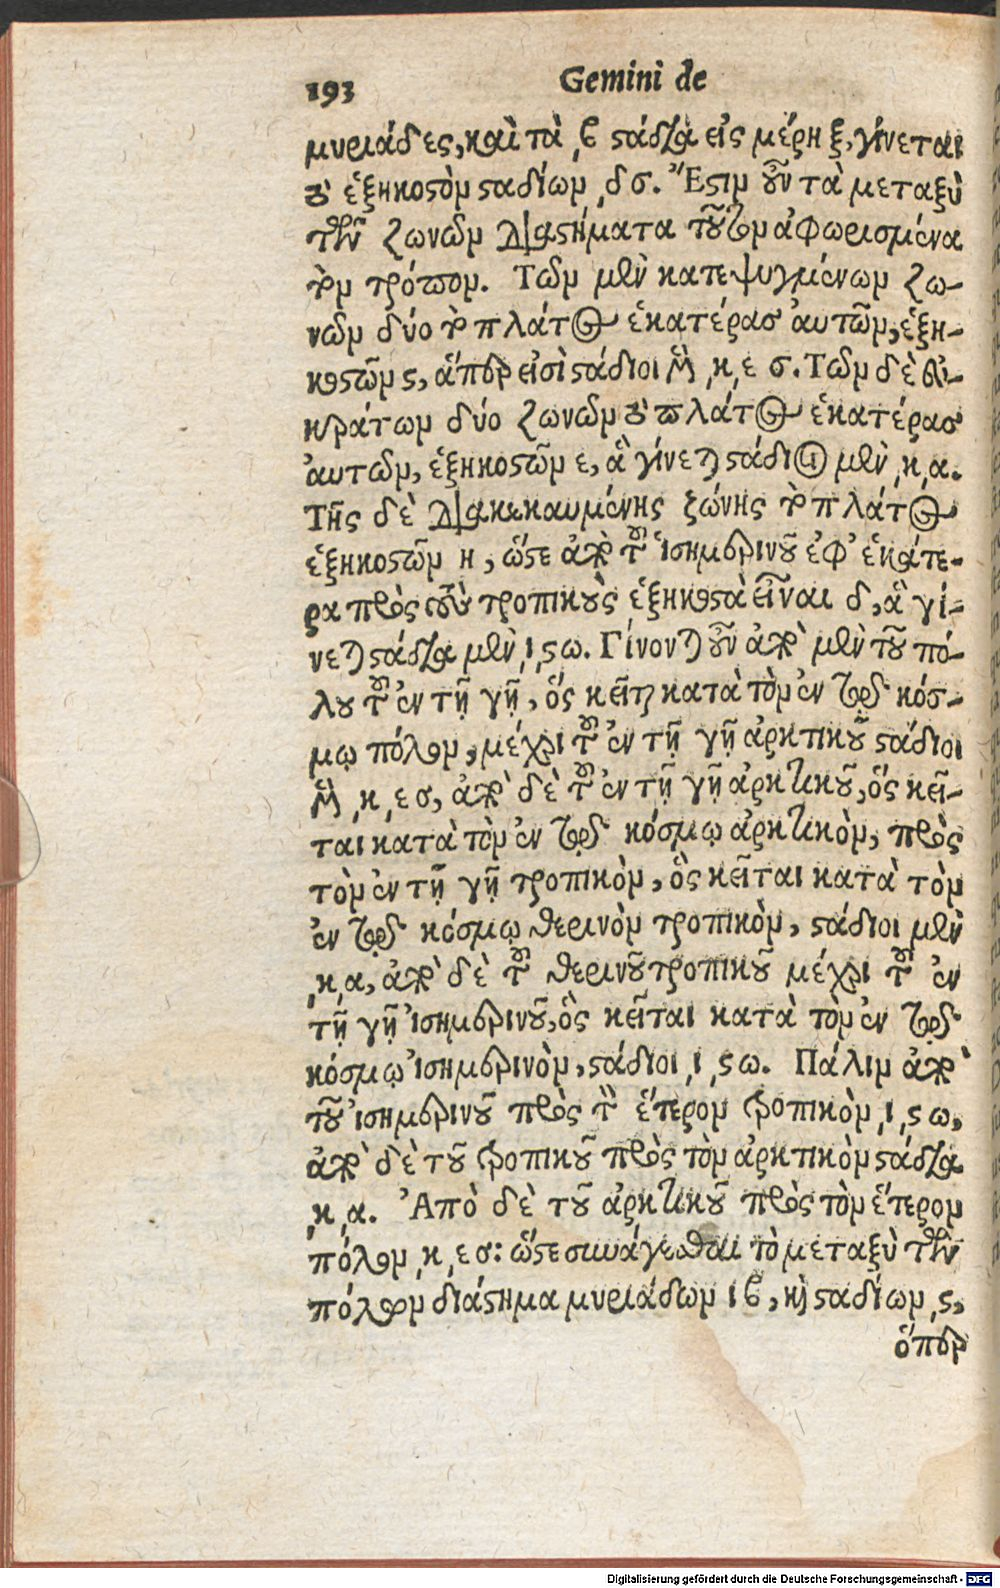 193 Gemini de
μυριάδες, καὶ τὰ ͵β ϛάδια εἰς μέρη ξ, γίνεται
τὸ ἑξηκοϛὸν ϛαδίων ͵δσ. Ἔϛιν οὖν τὰ μεταξὺ
τῶν ζωνῶν διαϛήματα τοῦτον ἀφωρισμένα
τὸν τρόπον. Τῶν μὲν κατεψυγμένων ζω-
νῶν δύο τὸ πλάτος ἑκατέρας αὐτῶν, ἑξη-
κοϛῶν ϛ, ἅπερ εἰσὶ ϛάδιοι Μ͵κ͵εσ. Τῶν δὲ εὐ-
κράτων δύο ζωνῶν τὸ πλάτος ἑκατέρας
αὐτῶν, ἑξηκοϛῶν ε, ἃ γίνεται ϛάδιοι μὲν ͵κ͵α.
Τῆς δὲ διακεκαυμένης ζώνης τὸ πλάτος
ἑξηκοϛῶν η, ὥϛε ἀπὸ τοῦ ἰσημερινοῦ ἐφ' ἑκάτε-
ρα πρὸς τοὺς τροπικοὺς ἑξηκοϛὰ εἶναι δ, ἃ γί-
νεται ϛάδια μὲν ͵ι͵ϛω. Γίνονται οὖν ἀπὸ μὲν τοῦ πό-
λου τοῦ ἐν τῇ γῇ, ὃς κεῖται κατὰ τὸν ἐν τῷ κόσ-
μῳ πόλον, μέχρι τοῦ ἐν τῇ γῇ ἀρκτικοῦ ϛάδιοι
Μ͵κ͵εσ, ἀπὸ δὲ τοῦ ἐν τῇ γῇ ἀρκτικοῦ, ὃς κεῖ-
ται κατὰ τὸν ἐν τῷ κόσμῳ ἀρκτικὸν, πρὸς
τὸν ἐν τῇ γῇ τροπικὸν, ὃς κεῖται κατὰ τὸν
ἐν τῷ κόσμῳ θερινὸν τροπικὸν, ϛάδιοι μὲν
͵κ͵α, ἀπὸ δὲ τοῦ θερινοῦ τροπικοῦ μέχρι τοῦ ἐν
τῇ γῇ ἰσημερινοῦ, ὃς κεῖται κατὰ τὸν ἐν τῷ
κόσμῳ ἰσημερινὸν, ϛάδιοι ͵ι͵ϛω. Πάλιν ἀπὸ
τοῦ ἰσημερινοῦ πρὸς τὸν ἕτερον τροπικὸν ͵ι͵ϛω,
ἀπὸ δὲ τοῦ τροπικοῦ πρὸς τὸν ἀρκτικὸν ϛάδια
͵κ͵α. Ἀπὸ δὲ τοῦ ἀρκτικοῦ πρὸς τὸν ἕτερον
πόλον ͵κ͵εσ: ὥϛε συνάγεσθαι τὸ μεταξὺ τῶν
πόλων διάϛημα μυριάδων ιβ, καὶ ϛαδίων ͵ϛ,
ὅπερ
Digitalisierung gefördert durch die Deutsche Forschungsgemeinschaft - DFG